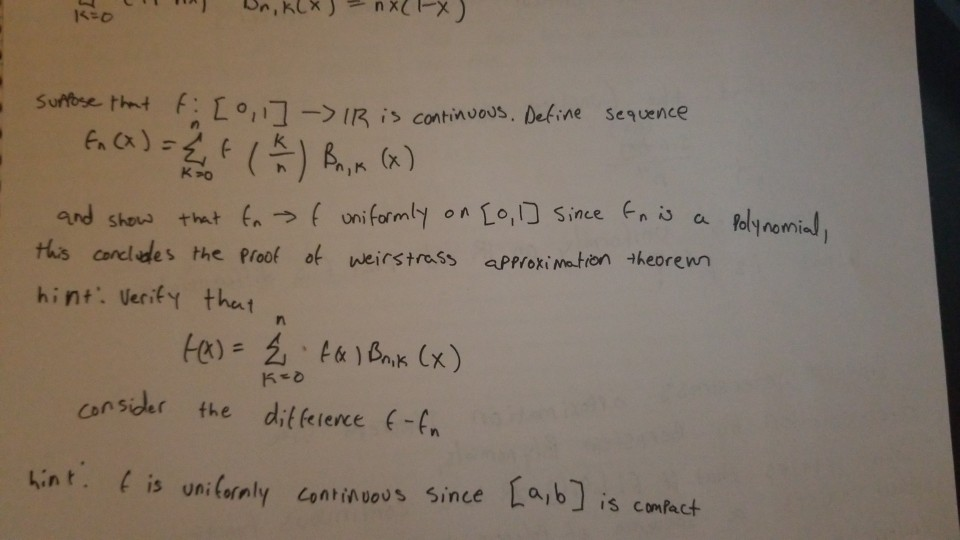 K=0 Bn,K(x) = nx(1-x)
Suppose that f: [0,1] -> IR is continuous. Define sequence
fn(x) = n Σ K=0 f (K/n) Bn,K (x)
and show that fn → f uniformly on [0,1] Since fn is a Polynomial,
this concludes the proof of weirstrass approximation theorem
hint: Verify that
f(x) = n Σ K=0 f(x) Bn,K (x)
consider the difference f-fn
hint: f is uniformly continuous since [a,b] is compact